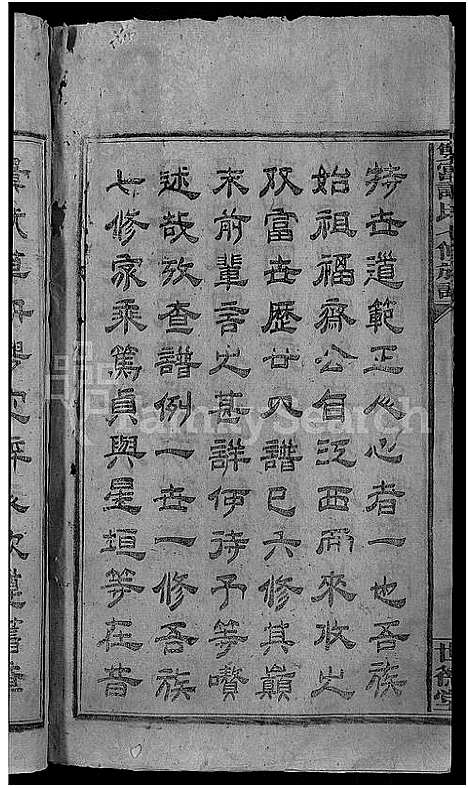 持世道範正人心者一也吾族
始祖福齋公自江西而來攸之
双富世歷廿八譜已六修其巔
末前輩言之甚詳伊待予等贅
述哉攷查譜例一世一修吾族
七修家乘篤貞與星垣等在昔
雙富譚氏七修族譜
世德堂
FamilySearch